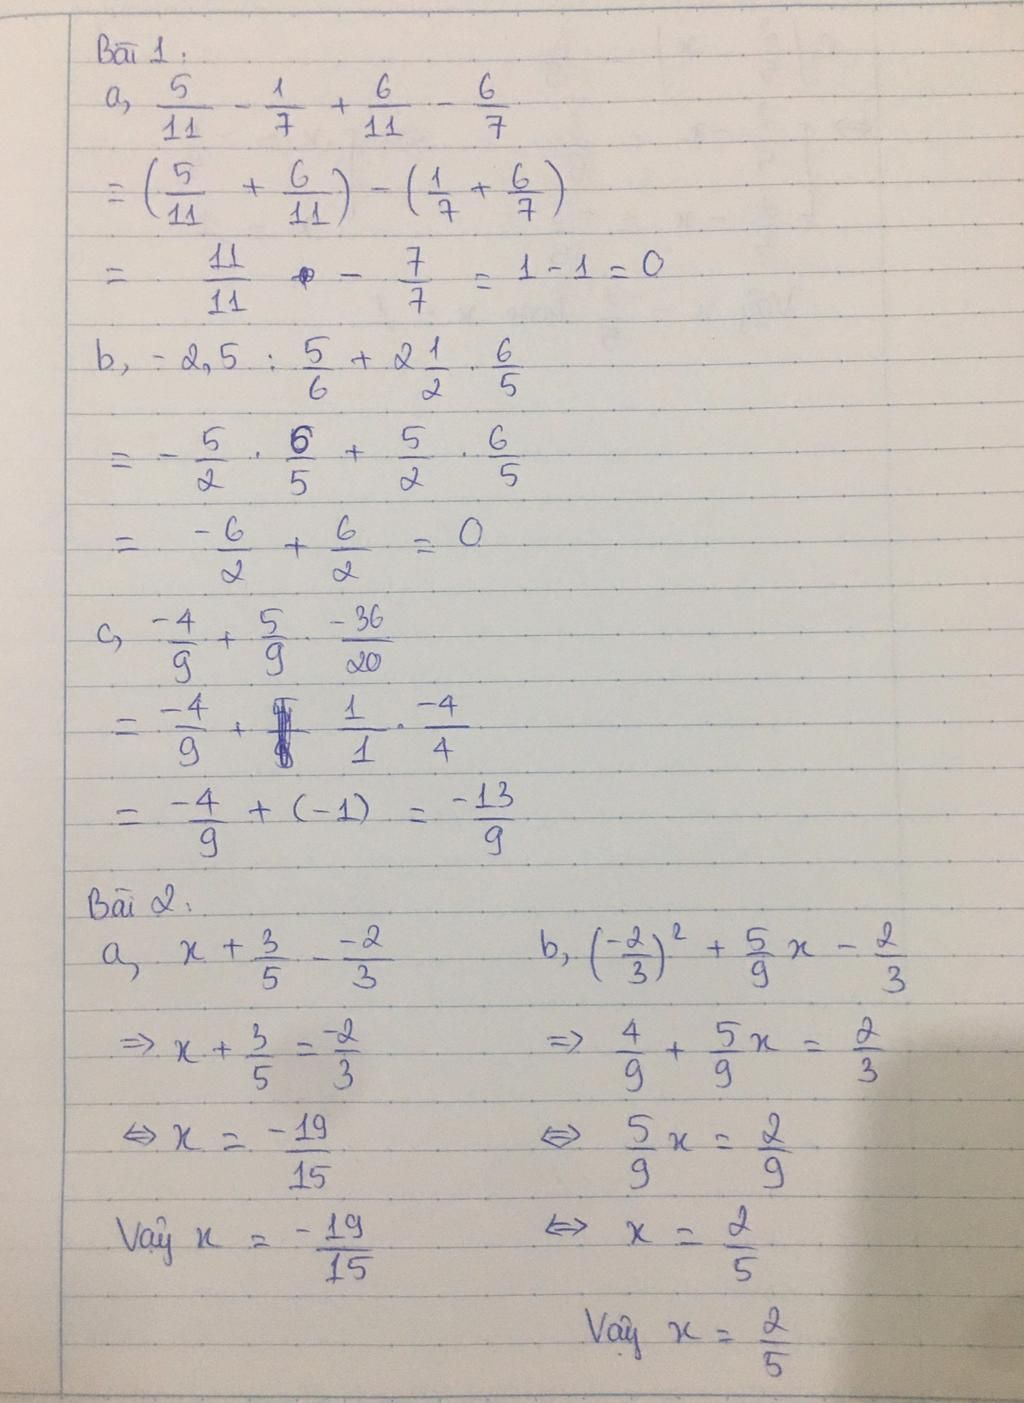 Bài 1:
a, 5/11 - 1/7 + 6/11 - 6/7
= (5/11 + 6/11) - (1/7 + 6/7)
= 11/11 - 7/7 = 1 - 1 = 0
b, - 2,5 : 5/6 + 2 1/2 . 6/5
= - 5/2 . 6/5 + 5/2 . 6/5
= -6/2 + 6/2 = 0
c, -4/9 + 5/9 . -36/20
= -4/9 + 1/1 . -4/4
= -4/9 + (-1) = -13/9
Bài 2:
a, x + 3/5 - -2/3
=> x + 3/5 = -2/3
<=> x = -19/15
Vậy x = -19/15
b, (-2/3)² + 5/9 x - 2/3
=> 4/9 + 5/9 x = 2/3
<=> 5/9 x = 2/9
<=> x = 2/5
Vậy x = 2/5